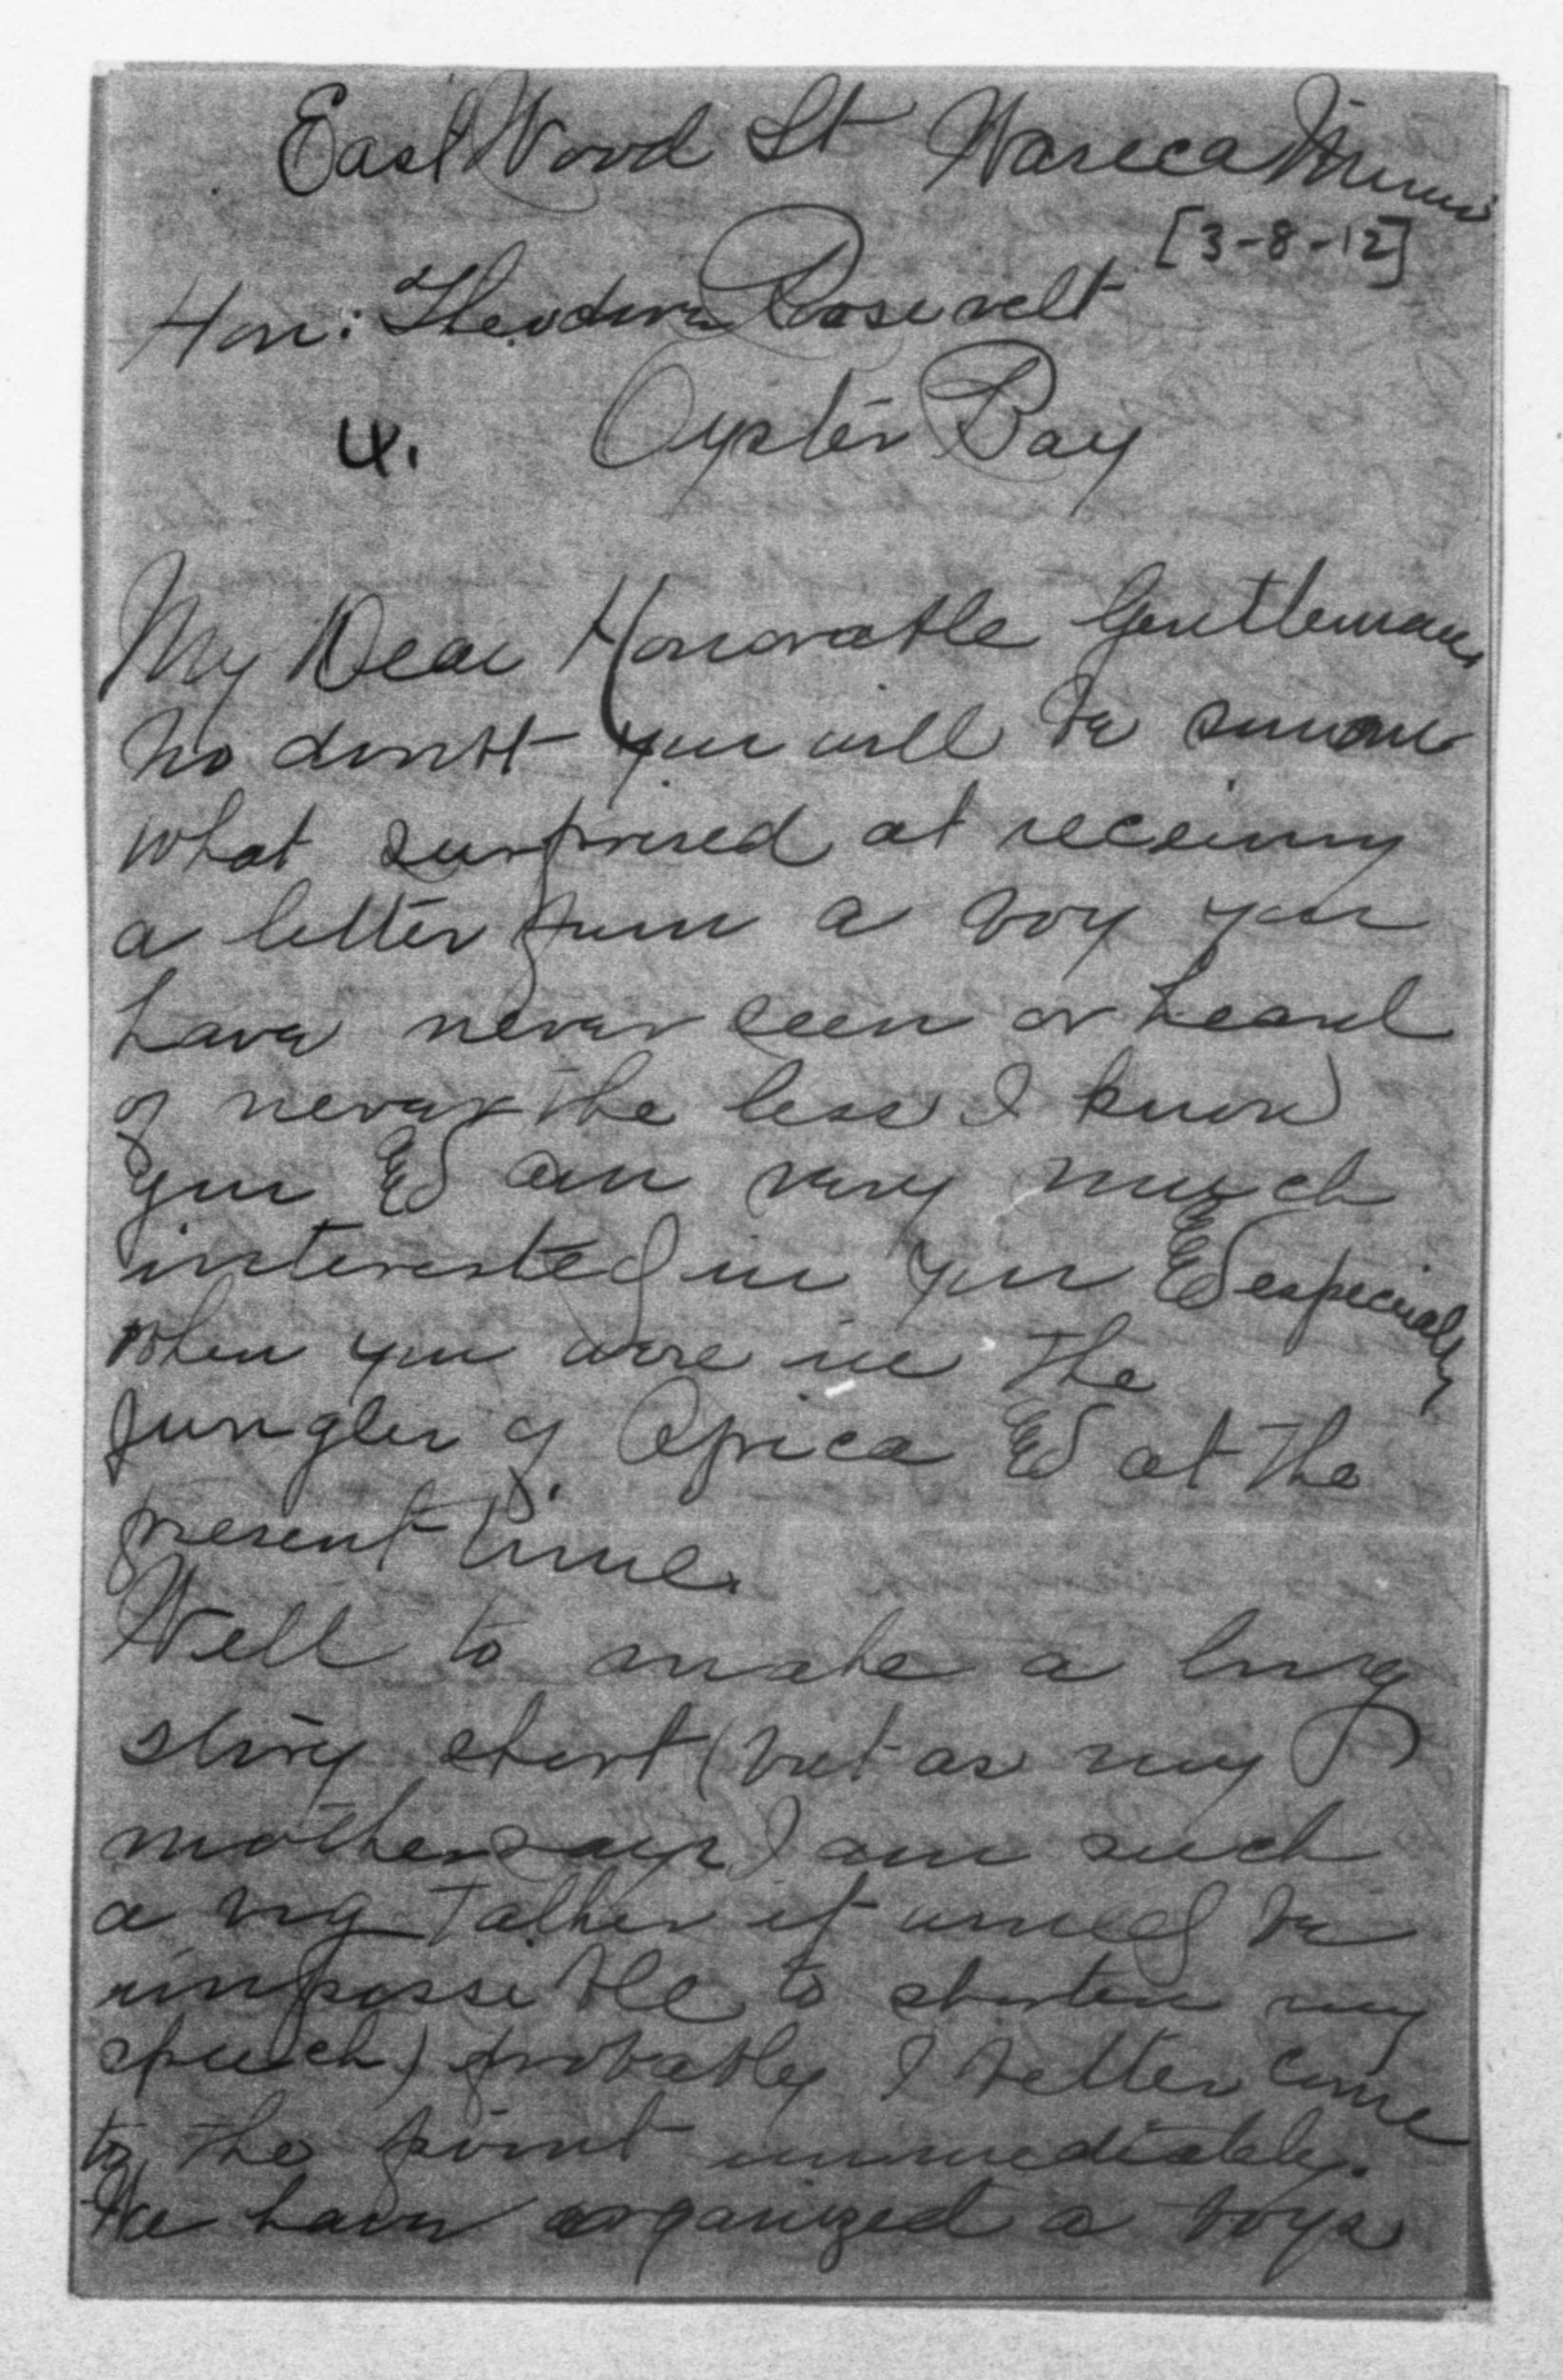 East Wood St Waseca Minn
[3-8-12]
Hon: Theodore Roosevelt
4. Oyster Bay
My Dear Honorable Gentleman
No doubt you will be some
what surprised at receiving
a letter from a boy you
have never seen or heard
of never the less I know
you & am very much
interested in you & especially
when you were in the
Jungles of Africa & at the
present time.
Well to make a long
story short (but as my
mother says I am such
a big talker it would be
impossible to shorten my
speech) probably I better come
to the point immediately.
We have organized a boys